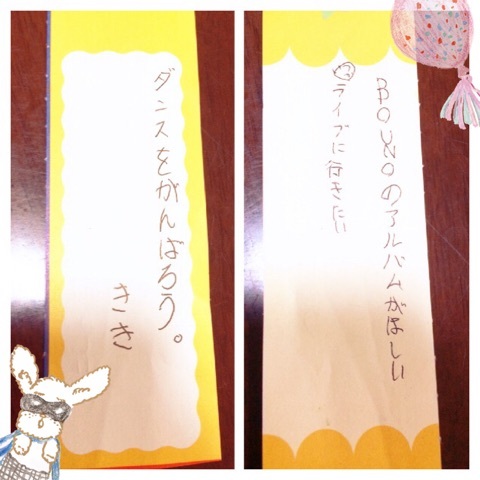 ダンスをがんばろう。
きき
BOUNOのアルバムがほしい
ライブに行きたい